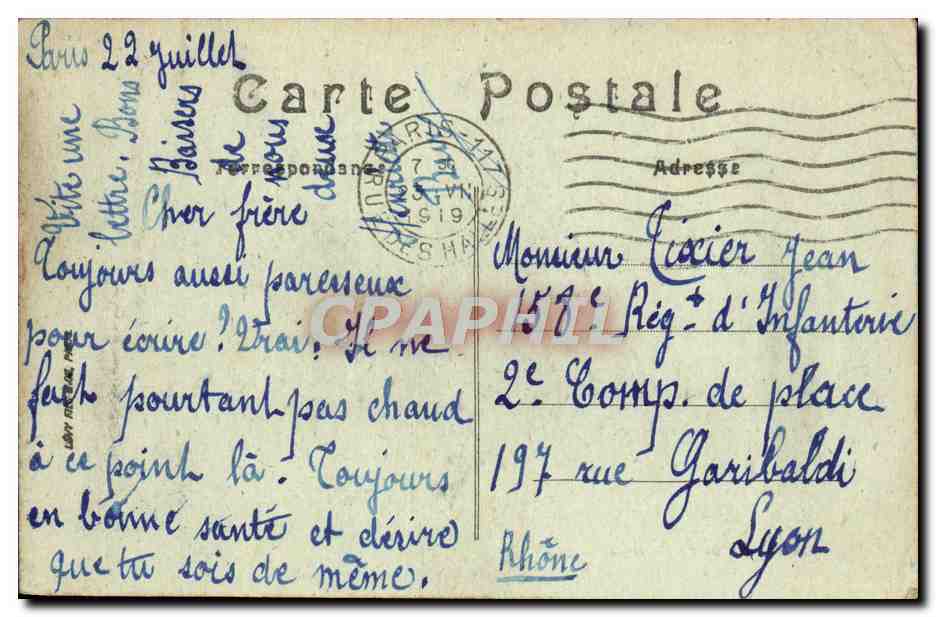 Paris 22 Juillet
Carte Postale
Correspondance
Adresse
Cher frère
Toujours aussi paresseux
pour écrire ? Vrai. Il ne
fait pourtant pas chaud
à ce point là. Toujours
en bonne santé et désire
que tu sois de même.
Vite une
lettre. Bons
Baisers
de
nous
deux
Henriette
PARIS
1919
Monsieur Tixier Jean
158e Régt d'Infanterie
2e Comp. de place
197 rue Garibaldi
Lyon
Rhône
CPAPHIL